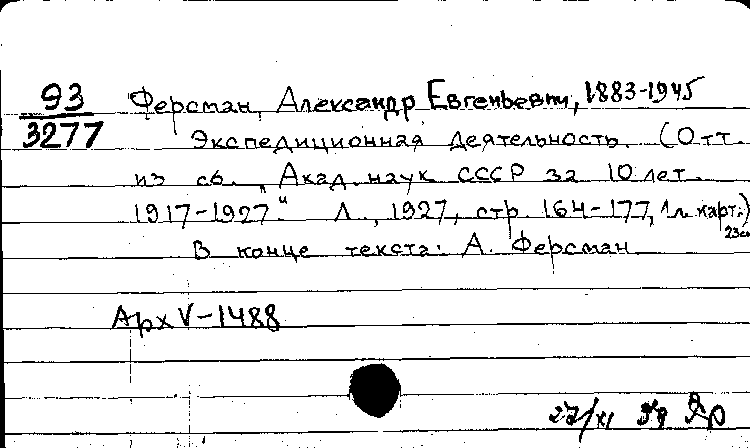 93 Ферсман, Александр Евгеньевич, 1883-1945
3277 Экспедиционная деятельность. (Отт.
из сб. „Акад. наук СССР за 10 лет.
1917-1927" Л., 1927, стр. 164-177, 1 л. карт.)
23см
В конце текста: А. Ферсман
Арх V-1488
27/XI